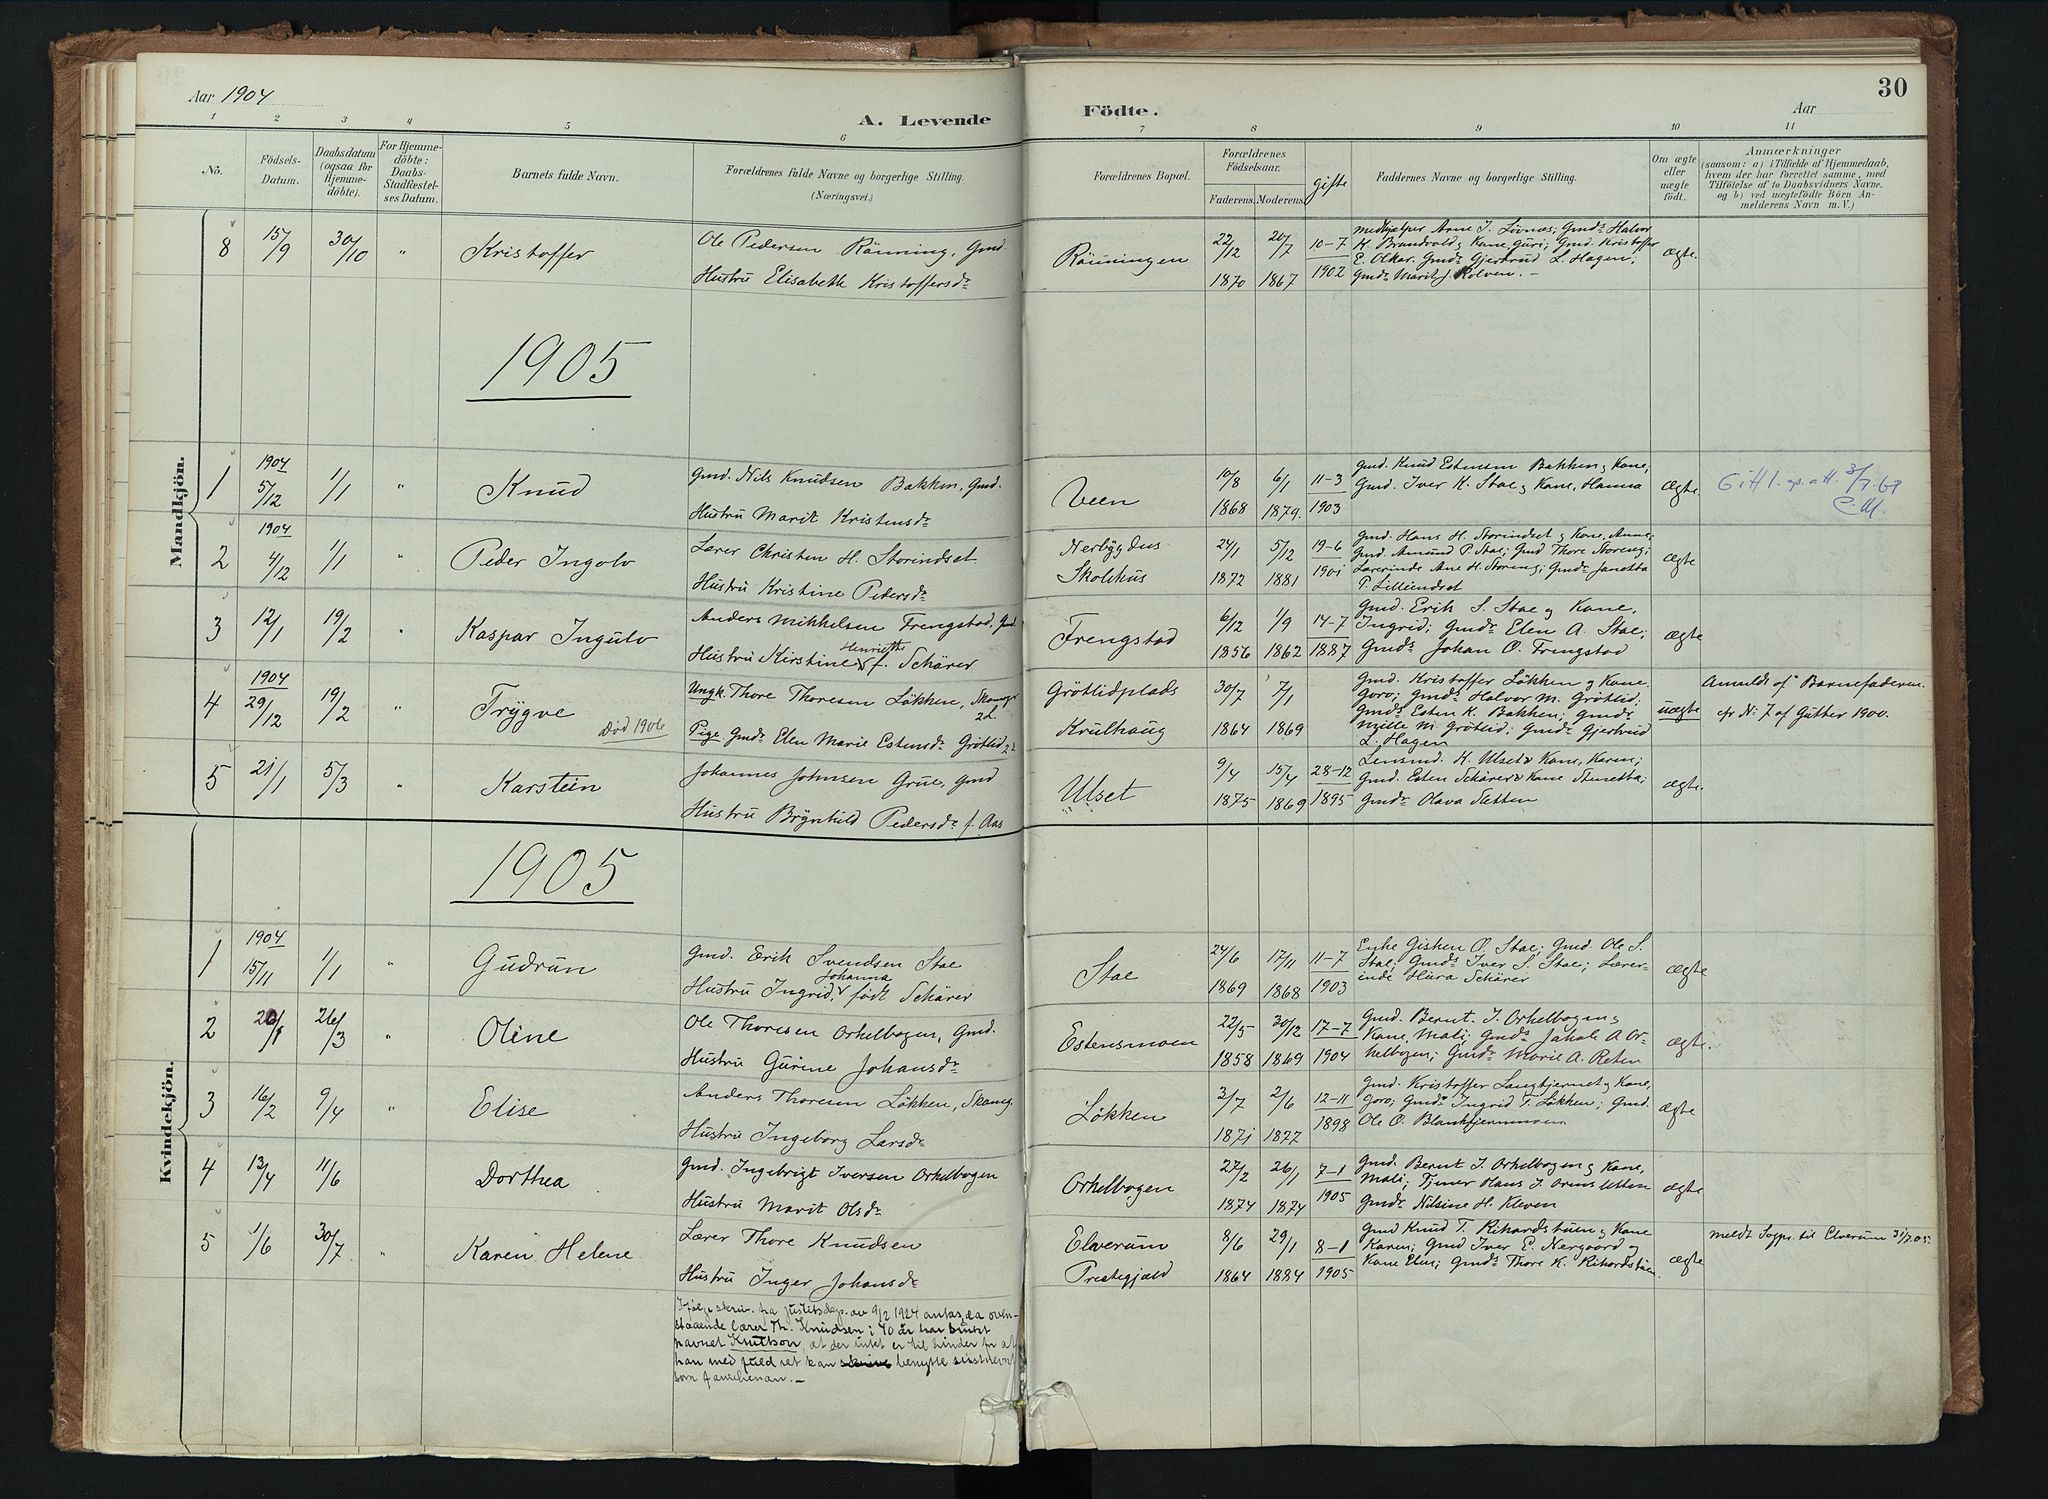 Aar 1904
A. Levende
Födte.
Aar
30
1 2 3 4 5 6 7 8 9 10 11
No.
Födsels-
Datum.
Daabsdatum
(ogsaa for
Hjemme-
döbte).
For Hjemme-
döbte:
Daabs-
Stadfæstel-
ses Datum.
Barnets fulde Navn.
Forældrenes fulde Navne og borgerlige Stilling.
(Næringsvei.)
Forældrenes Bopæl.
Forældrenes
Födselsaar.
Faderens. Moderens.
Gifte
Faddernes Navne og borgerlige Stilling.
Om ægte
eller
uægte
födt.
Anmærkninger
(saasom: a) i Tilfælde af Hjemmedaab,
hvem der har forrettet samme, med
Tilföielse af to Daabsvidners Navne.
og b) ved uægtefödte Börn An-
melderens Navn m. V.)
Mandkjön.
8 15/9 30/10 " Kristoffer
Ole Pedersen Rönning, Gmd.
Hustru Elisabeth Kristoffersdr
Rönningen
22/12 1870
20/7 1867
10-7 1902
Medhjelper Arne J. Lövnæs; Gmds Halvor
K. Brandvold & Kone, Guri; Gmd. Kristoffer
E. Olkar. Gmdr Gjertrud L. Hagen;
Gmdr Marit J. Kolven. -
ægte.
1905
1 1904 5/12 1/1 " Knud
Gmd. Nils Knudsen Bakken, Gmd.
Hustru Marit Kristensdr
Veen
10/8 1868
6/1 1879.
11-3 1903
Gmd. Knud Estensen Bakken & Kone,
Gmd. Iver K. Stae & Kone, Hanna
ægte
2 1904 4/12 1/1 " Peder Ingolv
Lærer Christen H. Storindset
Hustru Kristine Pedersdr
Nerbygdus
Skolehus
24/1 1872
5/12 1881
19-6 1901
Gmd. Hans H. Storindset & Kone, Anne;
Gmd. Amund P. Stae; Gmd Thore Storeng;
Lærerinde Ane H. Storeng; Gmdr Janetta
P. Lilleindset
ægte
3 12/1 19/2 " Kaspar Ingulv
Anders Mikkelsen Frengstad, Gmd.
Hustru Kirstine Henriette f. Schärer
Frengstad
6/12 1856
1/9 1862
14-7 1887
Gmd. Erik S. Stae & Kone,
Ingrid; Gmdr Elen A. Stae;
Gmds Johan O. Frengstad
ægte
4 1904 29/12 19/2 " Trygve
Död 1906
Ungk. Thore Thoresen Løkken, Skomgr
2d.
Pige. Gmdr Elen Marie Estensdr Grötlid 2d
Grötlidplads
Krulhaug
30/7 1864
7/1 1869
Gmd. Kristoffer Løkken & Kone,
Goro; Gmds Halvor M. Grötlid;
Gmds Esten K. Bakken; Gmdr
Mille M. Grötlid; Gmdr Gjertrud
L. Hagen
uægte
Anmeldt af Barnefaderen.
cfr No 7 af Gutter 1900.
5 21/1 5/3 " Karstein
Johannes Johnsen Grue, Gmd
Hustru Brynhild Pedersdr f. Aas
Ulset
9/4 1875
15/4 1869
28-12 1895
Lensmd. K. Ulset & Kone, Karen;
Gmd. Esten Schärer & Kone Annetta;
Gmdr Olava Sletten
ægte.
Kvindekjön.
1905
1 1904 15/11 1/1 " Gudrun
Gmd. Erik Svendsen Stae
Hustru Ingrid Johanna, født Schärer
Stae
24/6 1869
17/11 1868
11-7 1903
Enke Gisken O. Stae; Gmd. Ole S.
Stae; Gmds Iver S. Stae; Lærer-
inde Thora Schärer
ægte
2 20/1 26/3 " Oline
Ole Thoresen Orkelbogen, Gmd.
Hustru Gurine Johansdr
Estensmoen
22/5 1858
30/12 1869
17-7 1904
Gmd. Bernt J. Orkelbogen &
Kone, Mali; Gmds Jakob A Or-
kelbogen; Gmdr Marie A. Reten
ægte.
3 16/2 9/4 " Elise
Anders Thoresen Løkken, Skomg.
Hustru Ingeborg Larsdr
Løkken
3/7 1871
2/6 1877
12-11 1898
Gmd. Kristoffer Langkjernet & Kone,
Goro; Gmdr Ingrid T. Løkken; Gmd.
Ole O. Blankkjernmoen
ægte
4 13/4 11/6 Dorthea
Gmd. Ingebrigt Iversen Orkelbogen
Hustru Marit Olsdr
Orkelbogen
27/2 1874
26/1 1874
7-1 1905
Gmd. Bernt J. Orkelbogen & Kone,
Mali; Tjener Hans J. Ormsletten
Gmdr Nilsine H. Kleven
ægte
5 1/6 30/7 " Karen Helene
Lærer Thore Knudsen
Hustru Inger Johansdr
Elverum
Prestegjæld
8/6 1864
29/1 1884
8-1 1905
Gmd Knud T. Rikardstuen & Kone
Karen; Gmd Iver E. Nergaard &
Kone Elen; Gmds Thore K. Rikardstuen.
ægte
meldt Sogpr. til Elverum 31/7.05.
Ifølge skriv. fra justitsdep. av 9/2 1924 antas, da oven-
staaende lærer Th. Knudsen i 40 år har brukt
navnet Knutson, at der intet er til hinder for at
han med fuld ret kan benytte sistnevnt
som familienavn. -